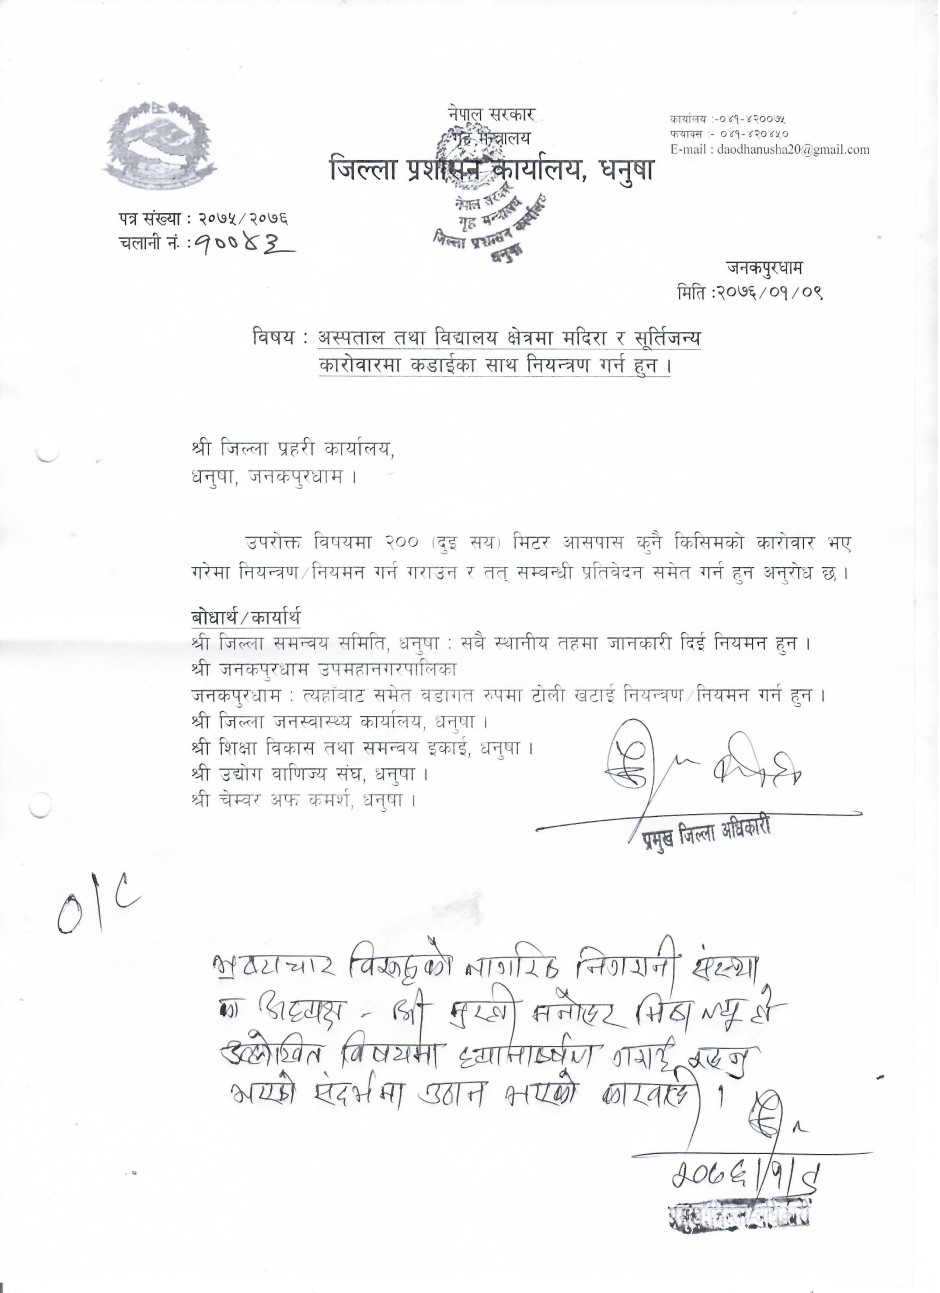 नेपाल सरकार
गृह मन्त्रालय
जिल्ला प्रशासन कार्यालय, धनुषा
कार्यालय :-०४१-४२००७५
फ्याक्स :- ०४१-४२०४५०
E-mail : daodhanusha20@gmail.com
नेपाल सरकार
गृह मन्त्रालय
जिल्ला प्रशासन कार्यालय
धनुषा
पत्र संख्या : २०७५/२०७६
चलानी नं. : १००४३
जनकपुरधाम
मिति :२०७६/०१/०९
विषय : अस्पताल तथा विद्यालय क्षेत्रमा मदिरा र सूर्तिजन्य
कारोवारमा कडाईका साथ नियन्त्रण गर्न हुन ।
श्री जिल्ला प्रहरी कार्यालय,
धनुषा, जनकपुरधाम ।
उपरोक्त विषयमा २०० (दुइ सय) मिटर आसपास कुनै किसिमको कारोवार भए
गरेमा नियन्त्रण/नियमन गर्न गराउन र तत् सम्बन्धी प्रतिवेदन समेत गर्न हुन अनुरोध छ ।
बोधार्थ/कार्यार्थ
श्री जिल्ला समन्वय समिति, धनुषा : सवै स्थानीय तहमा जानकारी दिई नियमन हुन ।
श्री जनकपुरधाम उपमहानगरपालिका
जनकपुरधाम : त्यहाँबाट समेत वडागत रुपमा टोली खटाई नियन्त्रण/नियमन गर्न हुन ।
श्री जिल्ला जनस्वास्थ्य कार्यालय, धनुषा ।
श्री शिक्षा विकास तथा समन्वय इकाई, धनुषा ।
श्री उद्योग वाणिज्य संघ, धनुषा ।
श्री चेम्वर अफ कमर्श, धनुषा ।
प्रमुख जिल्ला अधिकारी
O/C
भ्रष्टाचार विरूद्धको नागरिक निगरानी संस्था
का अध्यक्ष - श्री मुरली मनोहर मिश्र ज्यू ले
उल्लेखित विषयमा ध्यानाकर्षण गराई
भएको संदर्भमा उठान भएको कारवाही ।
२०७६/१/९